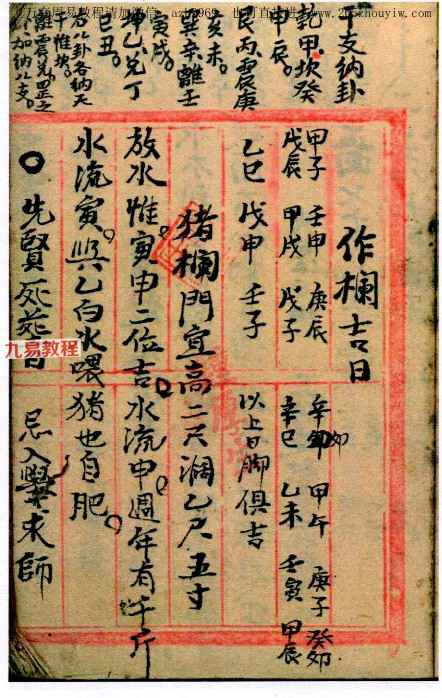 干支纳卦
乾甲坎癸
申辰。
艮丙震庚
亥未。
巽辛離壬
寅戌。
坤乙兑丁
巳丑。
作欄吉日
甲子 壬申 庚辰 辛卯 甲午 庚子 癸卯
戊辰 甲戌 戊子 辛巳 乙未 壬寅 甲辰
乙巳 戊申 壬子 以上日脚俱吉
猪欄門宜高二尺濶乙尺五寸
放水惟寅申二位吉水流申週年有千斤
水流寅與乙白水喂猪也自肥。
〇先賢死葬日 忌入學求師
九易教程